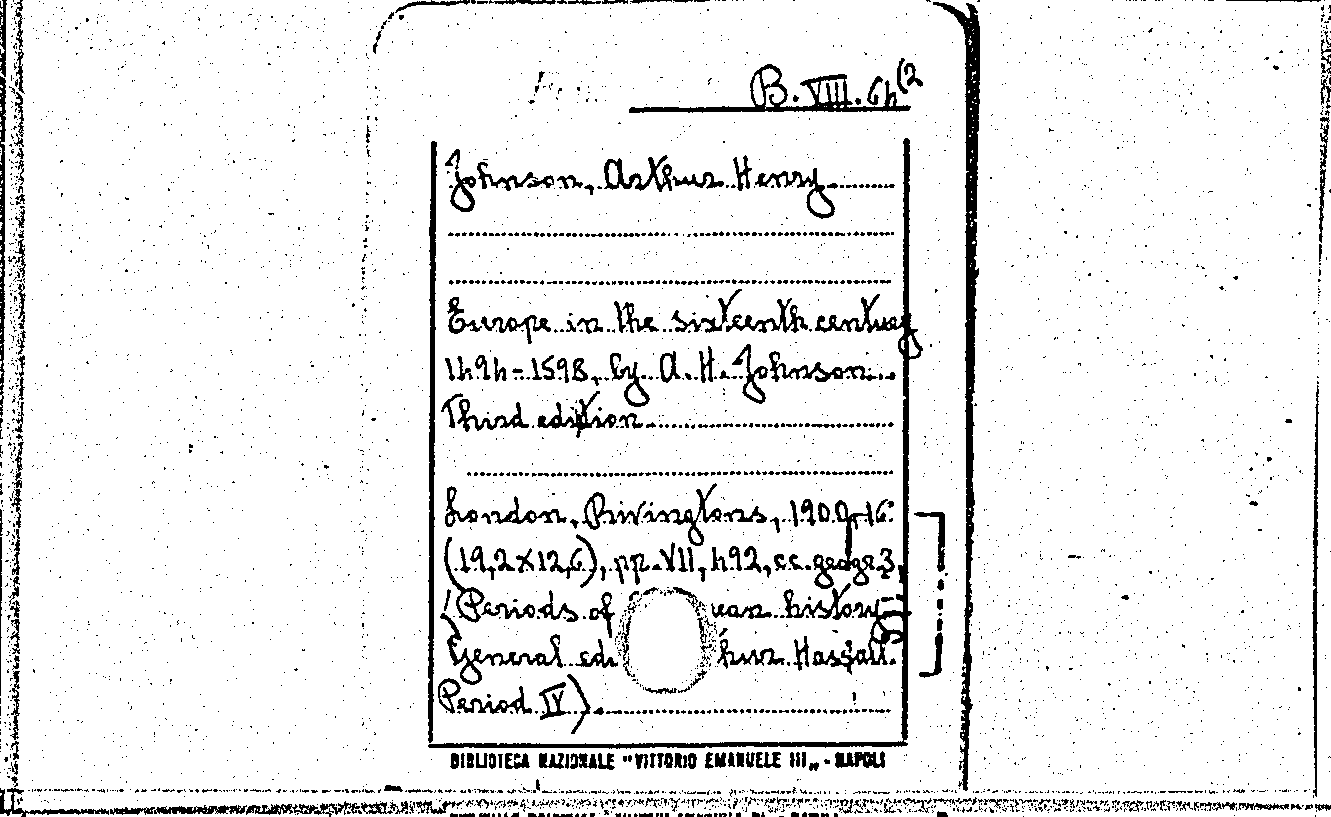 B. VIII. 64(2
Johnson, Arthur Henry
Europe in the sixteenth century
1494-1598, by A. H. Johnson.
Third edition
London, Rivingtons, 1900, 16°
(19,2 x 12,6), pp. VII, 492, cc. geogr. 3,
(Periods of uan history-
General edi hur Hassall.
Period IV)
BIBLIOTECA NAZIONALE "VITTORIO EMANUELE III„ - NAPOLI